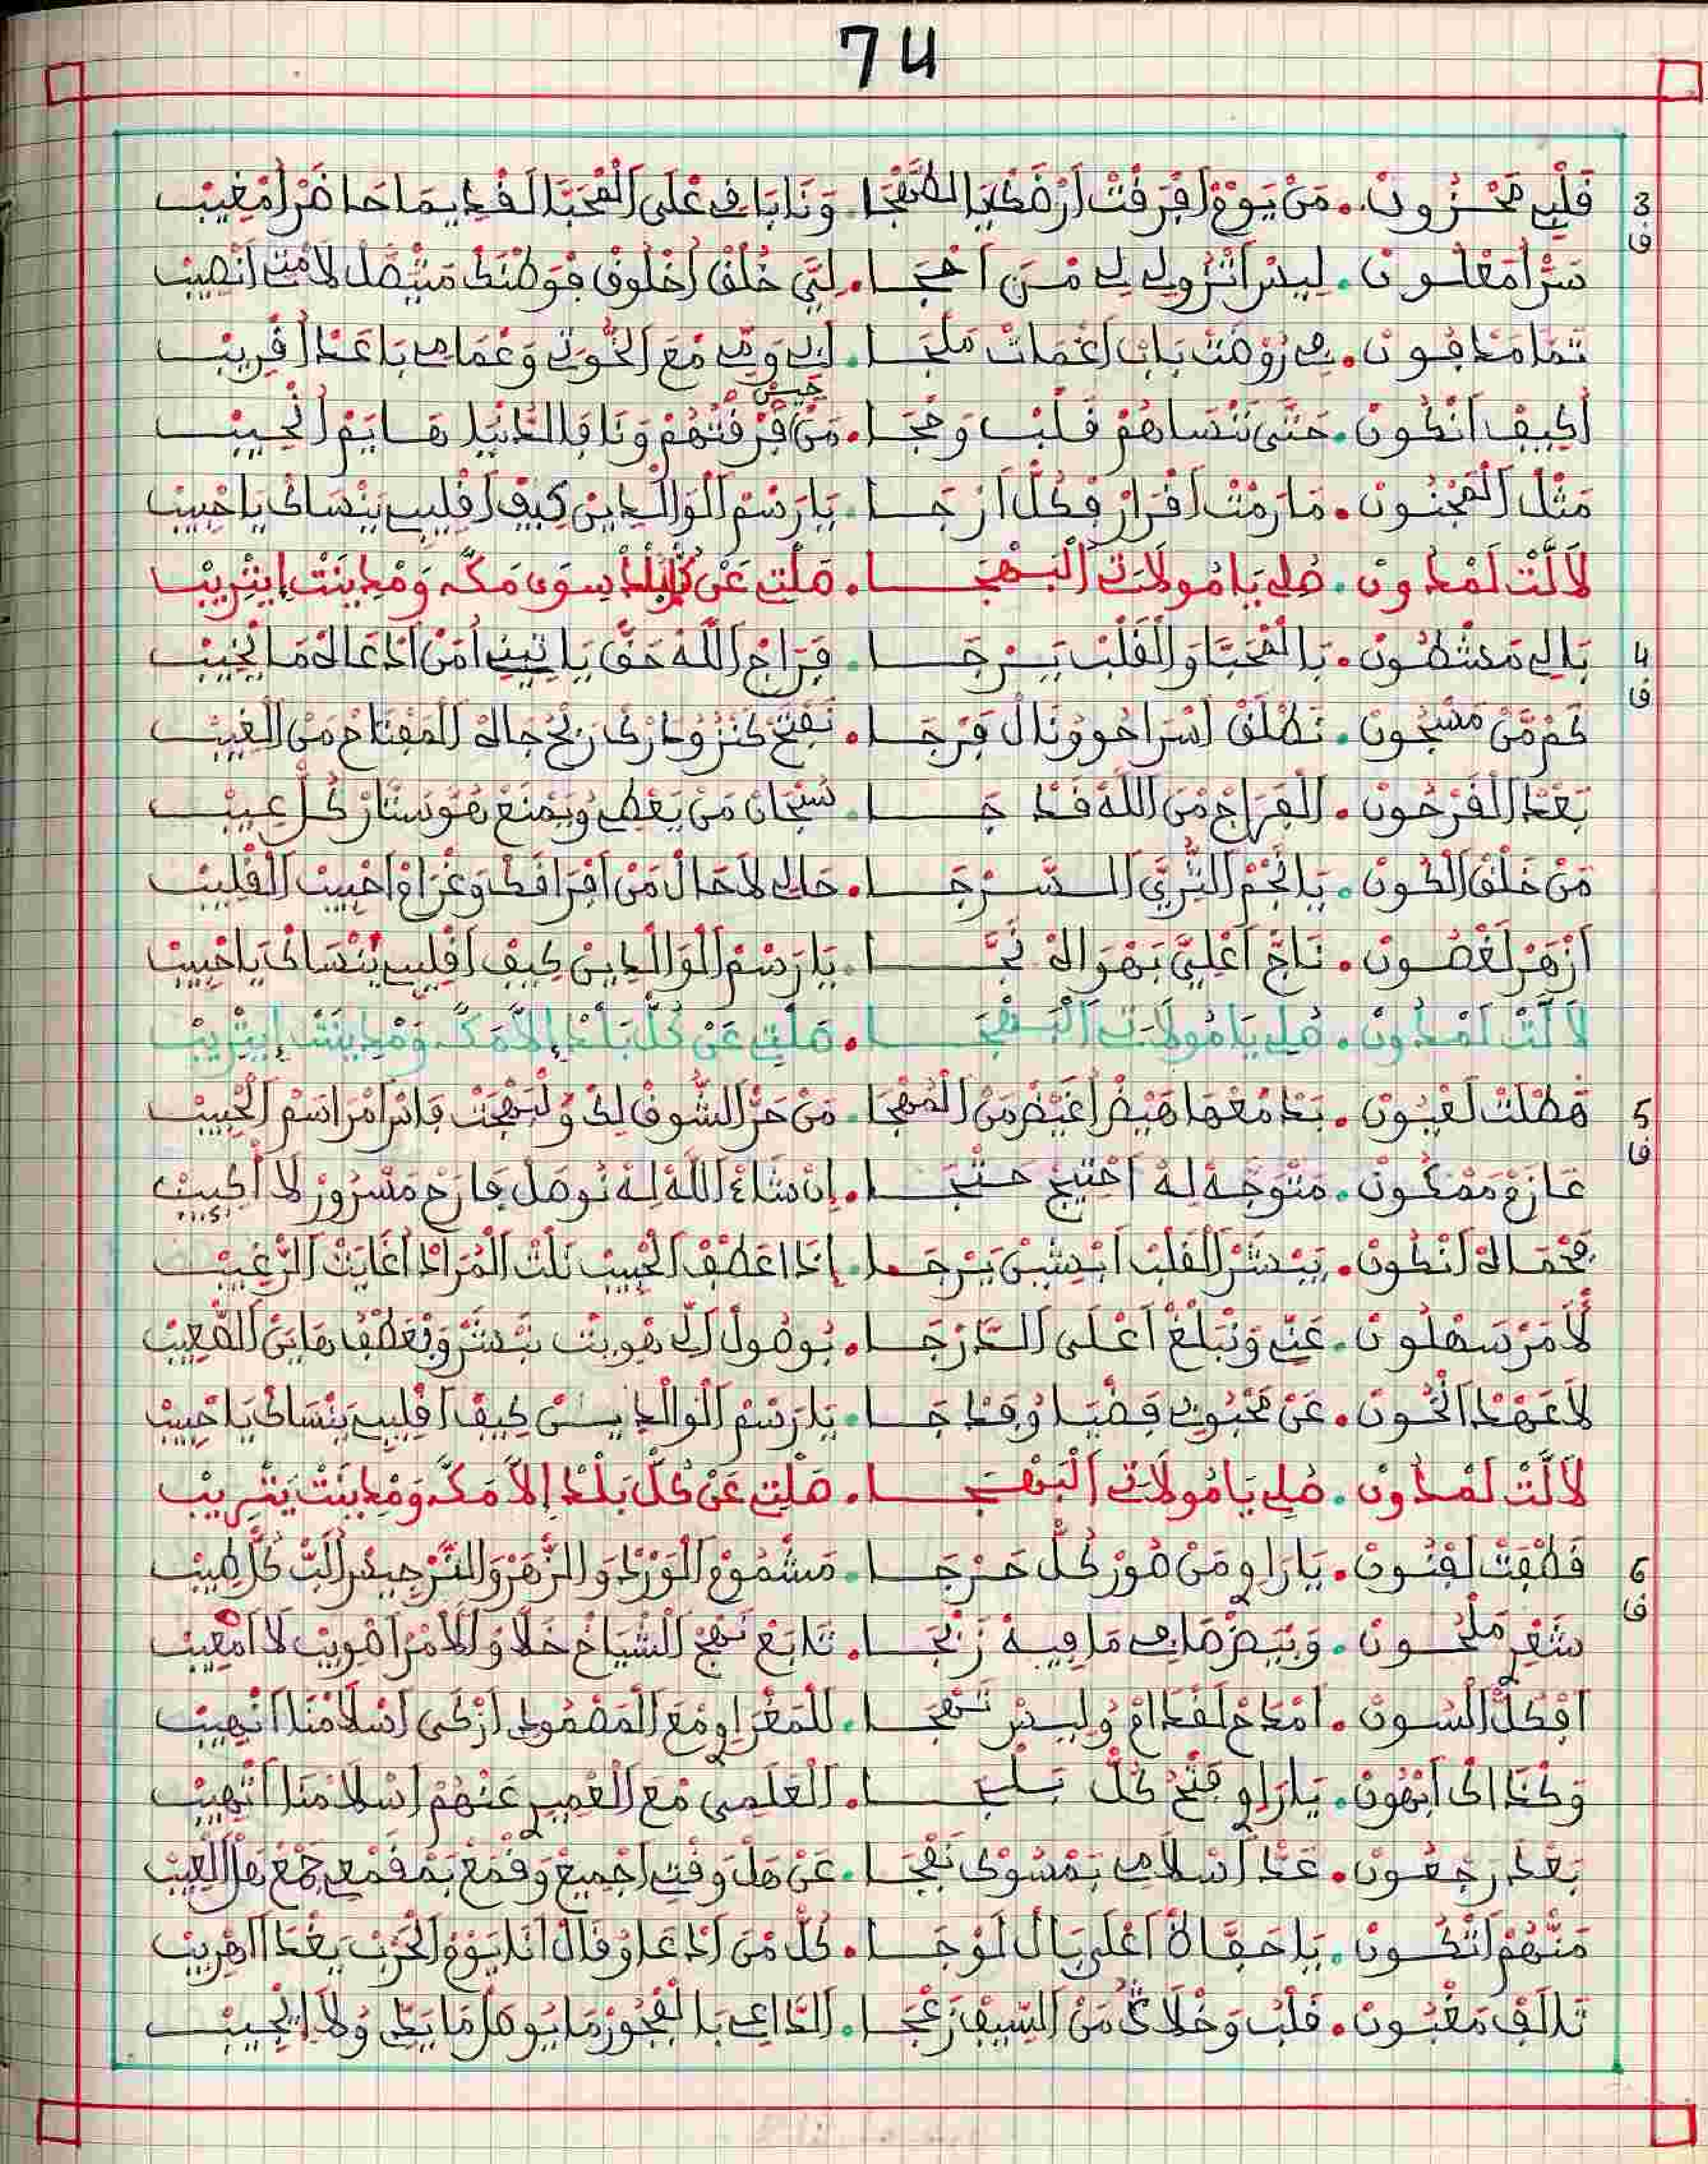 74
3 قَلْبِي مَحْزُونْ. مَنْ يَوْمْ افْرَقْتْ أَرْضَكْ يَا الضَّجَّا. وَنَا بَاقِي عْلَى الْمْحَبَّا لَقْدِيمَا حَاضَرْ أُمْغِيبْ
ف سَرُّ امَعْلُونْ. لِيسْ انْزُولِي لِي مَنْ احْجَا. لَنِّي خُلْقْ اخْلُوقْ فْوَطْنَكْ مَتَّصَّلْ لَامْتْ انْصِيبْ
تَمَّا مَدْفُونْ. فِي رُوضَتْ بَابْ اغْمَاتْ مَلْجَا. ابِي وَمِّي مْعَ الْخُوتِي وَعْمَامِي بَاعَدْ اقْرِيبْ
أُكِيفْ انْكُونْ. حَتَّى نَنْسَاهُمْ قَلْبْ وَحْجَا. مَنْ فُرْقَتْهُمْ وَنَا فَالدَّنْيَا هَايَمْ انْحِيبْ
مَثْلْ الْمَجْنُونْ. مَا رَمْتْ اقْرَارْ فْكُلّْ ارْجَا. يَا رَسْمْ الْوَالْدِينْ كِيفْ اقْلِيبِي يَنْسَاكْ يَا حْبِيبْ
لَالَّتْ لَمْدُونْ. صْلِي يَا مُولَاتِي الْبَهْجَا. مَلْتِي عَنْ كُلّْ بَلْدْ سِوَى مَكَّه وَمْدِينَتْ إِيثْرِيبْ
4 بَالِي مَشْطُونْ. بَالْمْحَبَّا وَالْقَلْبْ يَرْجَا. فْرَاجْ اللَّهْ حَقّْ يَاتِينِي أُمَنْ ادْعَاهْ مَا يْخِيبْ
ف كَمْ مَّنْ مَسْجُونْ. نَطْلَقْ اسْرَاحُو وْنَالْ فَرْجَا. نَفْتَحْ كَنْزُ وْدَارَكْ رَبْحْ جَاهْ الْمَفْتَاحْ مَنْ الْغِيبْ
بَعْدْ الْقَرْحُونْ. الْفْرَاجْ مْنَ اللَّهْ قَدْ جَا. سُبْحَانْ مَنْ يَعْطِي وْيَمْنَعْ هُوَ سَتَّارْ كُلّْ عِيبْ
مَنْ خَلْقْ الْكُونْ. يَا نَجْمْ الثْرِيَّ السَّرْجَا. حَالِي لَا حَالْ مَنْ افْرَاقَكْ وَغْرَامْ احْبِيبْ الْقْلِيبْ
ازْهَرْ لَغْصُونْ. تَاجْ اعْلِيَّ بَهْوَاهْ نَجَّا. يَا رَسْمْ الْوَالْدِينْ كِيفْ اقْلِيبِي يَنْسَاكْ يَا حْبِيبْ
لَالَّتْ لَمْدُونْ. صْلِي يَا مُولَاتِي الْبَهْجَا. مَلْتِي عَنْ كُلّْ بَلْدْ إِلَّا مَكَّه وَمْدِينَتْ إِيثْرِيبْ
5 هَطْلَتْ لَعْيُونْ. بَدْمُعْهَا هَيْضْ اغْيَضْ مَنْ الْمُهْجَا. مَنْ حَرّْ الشُّوقْ لِكْ وْلَبَهْجَتْ فَاسْ امْرَاسَمْ الْحْبِيبْ
ف عَازَمْ مَمْكُونْ. مَتْوَجَّهْ لِهْ احْتِيجْ حَتْجَا. إِنْ شَاءْ اللَّهْ لِهْ نُوصَلْ فَارَحْ مَسْرُورْ لَا أُكِيبْ
بَحْمَاهْ انْكُونْ. يَبْشَرْ الْقَلْبْ ابْشِيئْ يَرْجَا. إِذَا اعْطَفْ الْحْبِيبْ نَلْتْ الْمْرَادْ اغَايَتْ الرَّغِيبْ
لَامَرْ سَهْلُونْ. عَنِّي وَنْبَلَّغْ اعْلَى الدَّرْجَا. بُوصُولْ الِّي هْوِيتْ نَبْشَرْ وَنْعَطَّفْ هَايَنْ الصّْعِيبْ
لَا عَهْدْ انْخُونْ. عَنْ مَحْبُوبِي فَضْيَا وُفَدْجَا. يَا رَسْمْ الْوَالْدِينْ كِيفْ اقْلِيبِي يَنْسَاكْ يَا حْبِيبْ
لَالَّتْ لَمْدُونْ. صْلِي يَا مُولَاتِي الْبَهْجَا. مَلْتِي عَنْ كُلّْ بَلْدْ إِلَّا مَكَّه وَمْدِينَتْ يَثْرِيبْ
6 قَطْفَتْ لَفْنُونْ. يَا رَاوِي مَنْ صُورْ كُلّْ حَرْجَا. مَشْمُومْ الْوَرْدْ وَالزَّهْرْ وَالنَّرْجِيسْ الَبّْ كُلّْ طِيبْ
ف شَعْرِي مَلْحُونْ. وَبْيَضْ صَافِي مَا فِيهْ زَنْجَا. تَابَعْ نَهْجْ الشّْيَاخْ خَلَّاوْ الْامْرْ اصْوِيبْ لَا امْعِيبْ
افْكُلّْ السُّونْ. امْدَاحْ لَقْدَامْ وُلِيسْ نَهْجَا. لَلْمَغْرَاوِي مْعَ الْمَصْمُودِي ازْكَى اسْلَامْنَا انْهِيبْ
وَكْدَاكْ ابْهُونْ. يَا رَاوِي فَتْحْ كُلّْ بَلْجَا. الْعَلَمِي مْعَ الْعْمِيرِي عَنْهُمْ اسْلَامْنَا انْهِيبْ
بَعْدْ رَجْعُونْ. عَدّْ اسْلَامِي بَمْسُوكْ نَفْجَا. عَنْ هَلْ وَقْتِي اجْمِيعْ وَقْمَعْ بَمْقَمْعِي جَمْعْ هَلْ الْعِيبْ
مَنْهُمْ انْكُونْ. يَا حَفَّاظْ اعْلَى بَالْ لَوْجَا. كُلّْ مَنْ ادْعَا وْقَالْ انَا يَوْمْ الْحَرْبْ يَغْدَا اهْرِيبْ
تَالَفْ مَغْبُونْ. قَلْبُ وَخْلَاقُ مَنْ السِّيفْ زَعْجَا. الدَّاعِي بَالْفْجُورْ مَا يُوصَلْ مَا يَدِّي وُلَا ايْجِيبْ